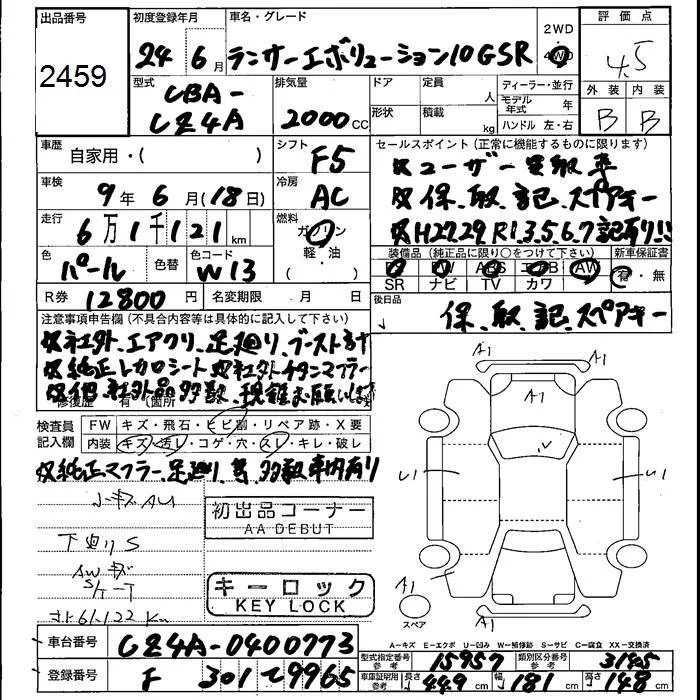 出品番号 初度登録年月 車名・グレード 2WD・4WD 評価点
2459
24年 6月 ランサーエボリューション10GSR 4.5
型式 排気量 ドア 定員 人 ディーラー・並行 外装 内装
CBA-
CZ4A 2000cc 形状 積載 kg モデル年式 年 ハンドル 左・右 B B
車歴 自家用・( ) シフト F5 セールスポイント(正常に機能するものに限ります)
ユーザー買取車
車検 9年 6月(18日) 冷房 AC 保、取、記、スペアキー
走行 6万1千121km 燃料 ガソリン・軽油・( ) H27.29 R1.3.5.6.7記有り!!
色 パール 色替 色コード W13 装備品(純正品に限り○をつけて下さい) 新車保証書
SR PW ABS エアB AW 有・無
SR ナビ TV カワ
R券 12800円 名変期限 月 日 後日品 保、取、記、スペアキー
注意事項申告欄(不具合内容等は具体的に記入して下さい)
社外、エアクリ、足廻り、ブースト計
純正レカロシート 社外チタンマフラー
他、社外品多数、現確お願いします
修復歴 有(箇所
検査員記入欄 FW キズ・飛石・ヒビ割・リペア跡・X要
内装 キズ・汚レ・コゲ・穴・スレ・キレ・破レ
純正マフラー、足廻り、等、多数車内有り
小キズAU
初出品コーナー
AA DEBUT
下廻りS
AWキズ
キーロック
KEY LOCK
61122Km
A1
A1
A1
A1
スペア
A-キズ E-エクボ U-凹み W-補修跡 S-サビ C-腐食 XX-交換済
車台番号 CZ4A-0400773
型式指定番号 参考 15957 類別区分番号 参考 3145
登録番号 F 301 て 9965
車庫証明用 参考 長さ 449cm 幅 181cm 高さ 148cm